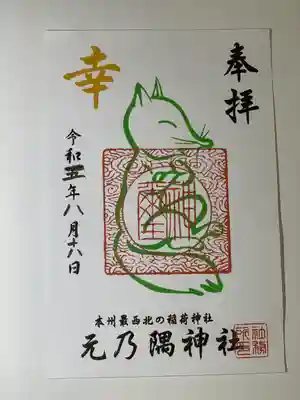 奉拝
幸
令和五年八月十八日
本州最西北の稲荷神社
元乃隅神社